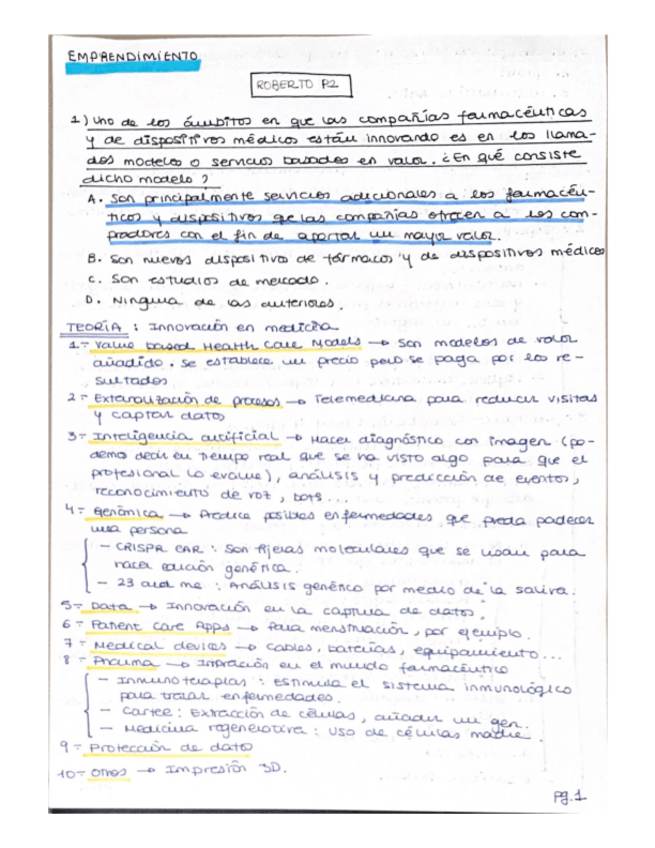 EMPRENDIMIENTO
ROBERTO P2
1) Uno de los ámbitos en que las compañías farmacéuticas
y de dispositivos médicos están innovando es en los llama-
dos modelos o servicios basados en valor. ¿En qué consiste
dicho modelo?
A. Son principalmente servicios adicionales a los farmacéu-
ticos y dispositivos que las compañías ofrecen a los com-
pradores con el fin de aportar un mayor valor.
B. Son nuevos dispositivos de fármacos y de dispositivos médicos
C. Son estudios de mercado.
D. Ninguna de las anteriores.
TEORÍA: Innovación en medicina
1- Value based Health Care Models → Son modelos de valor
añadido. Se establece un precio pero se paga por los re-
sultados
2- Externalización de procesos → Telemedicina para reducir visitas
y captar datos
3- Inteligencia artificial → Hacer diagnóstico con imagen (po-
demo decir en tiempo real que se ha visto algo para que el
profesional lo evalúe), análisis y predicción de eventos,
reconocimiento de voz, bots...
4- Genómica → Predice posibles enfermedades que pueda padecer
una persona
- CRISPR CAR: Son tijeras moleculares que se usan para
hacer edición genética.
- 23 and me: Análisis genético por medio de la saliva.
5- Data → Innovación en la captura de datos.
6- Patient Care Apps → Para menstruación, por ejemplo.
7- Medical devices → Cables, baterías, equipamiento...
8- Pharma → Innovación en el mundo farmacéutico
- Inmunoterapias: Estimula el sistema inmunológico
para tratar enfermedades.
- Cartee: Extracción de células, añadir un gen.
- Medicina regenerativa: Uso de células madre.
9- Protección de datos
10- Otros → Impresión 3D.
Pg.1